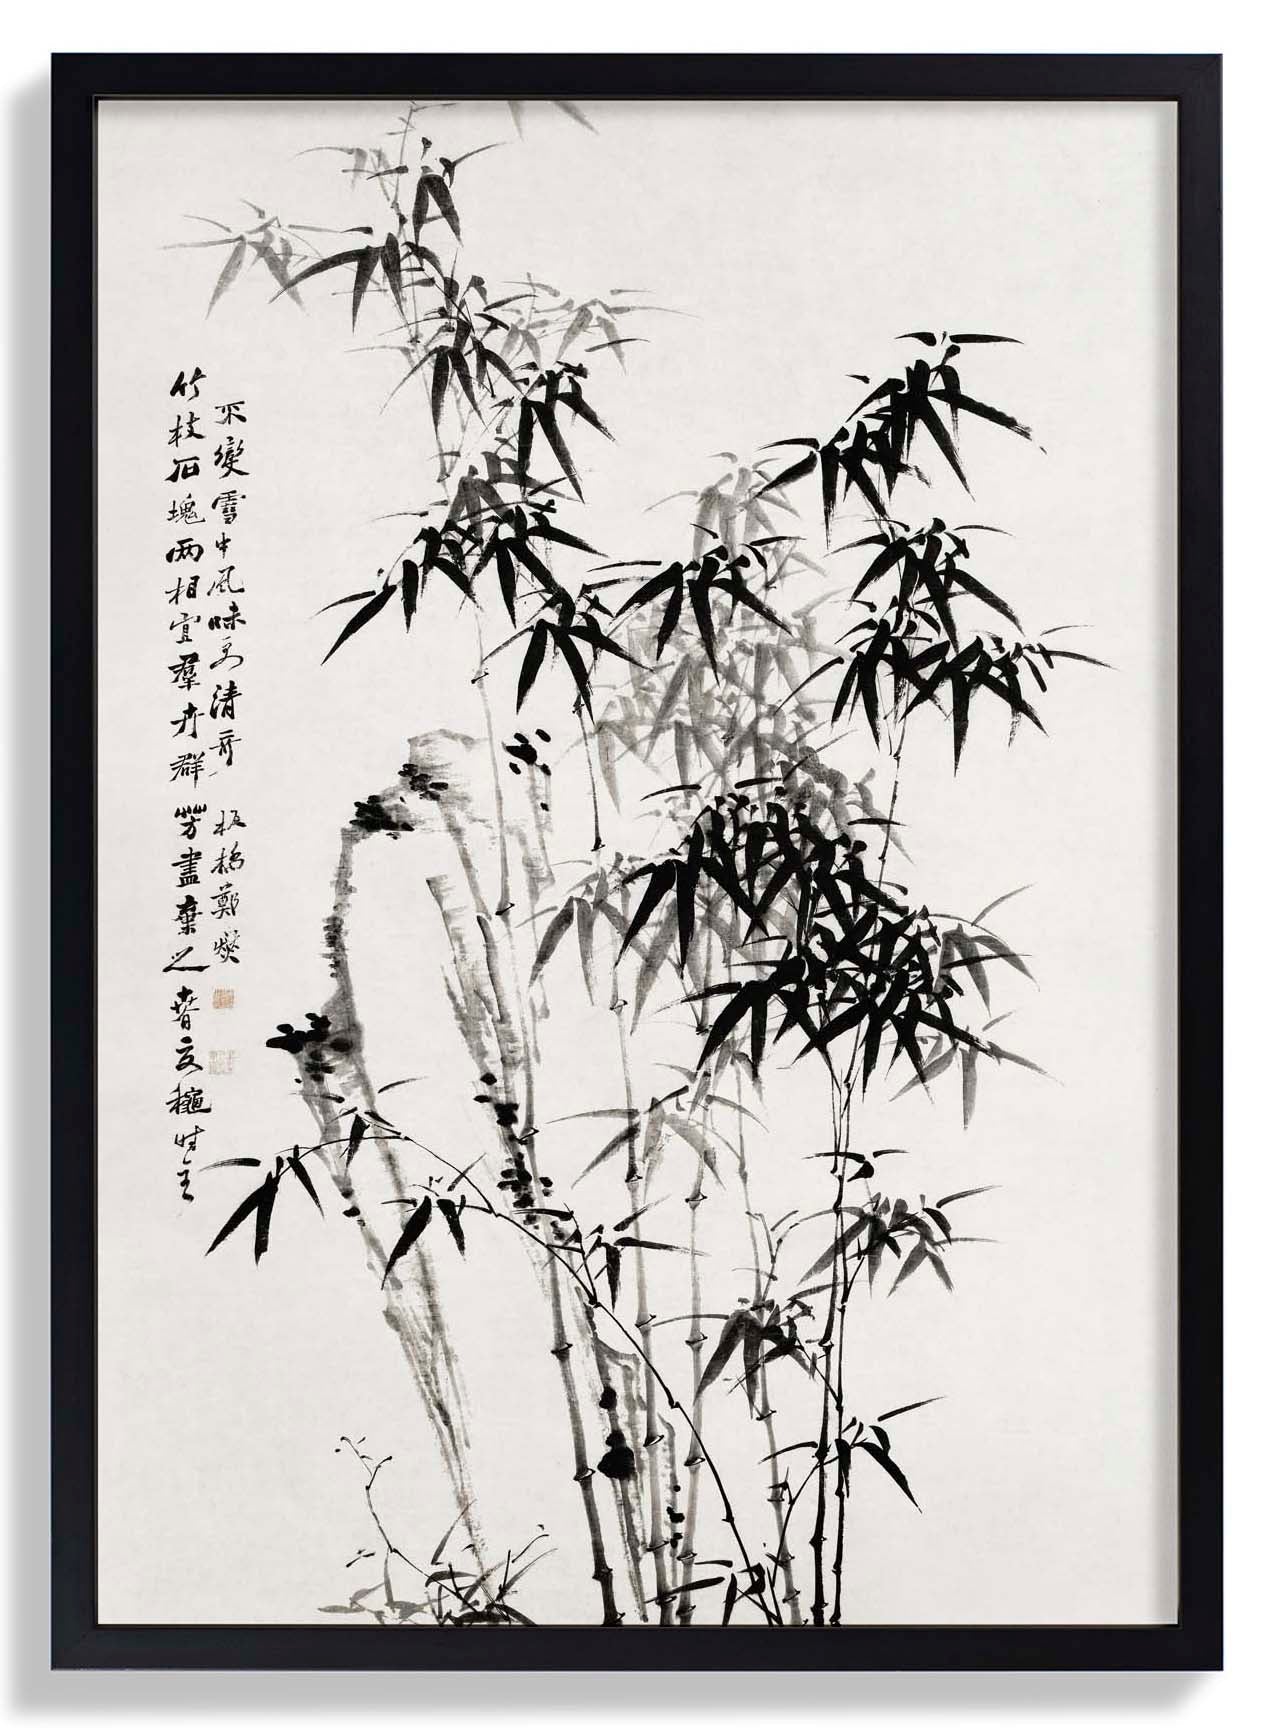 竹枝石塊两相宜羣卉群芳盡棄之春夏穐時全
不變雪中風味更清奇板橋鄭燮